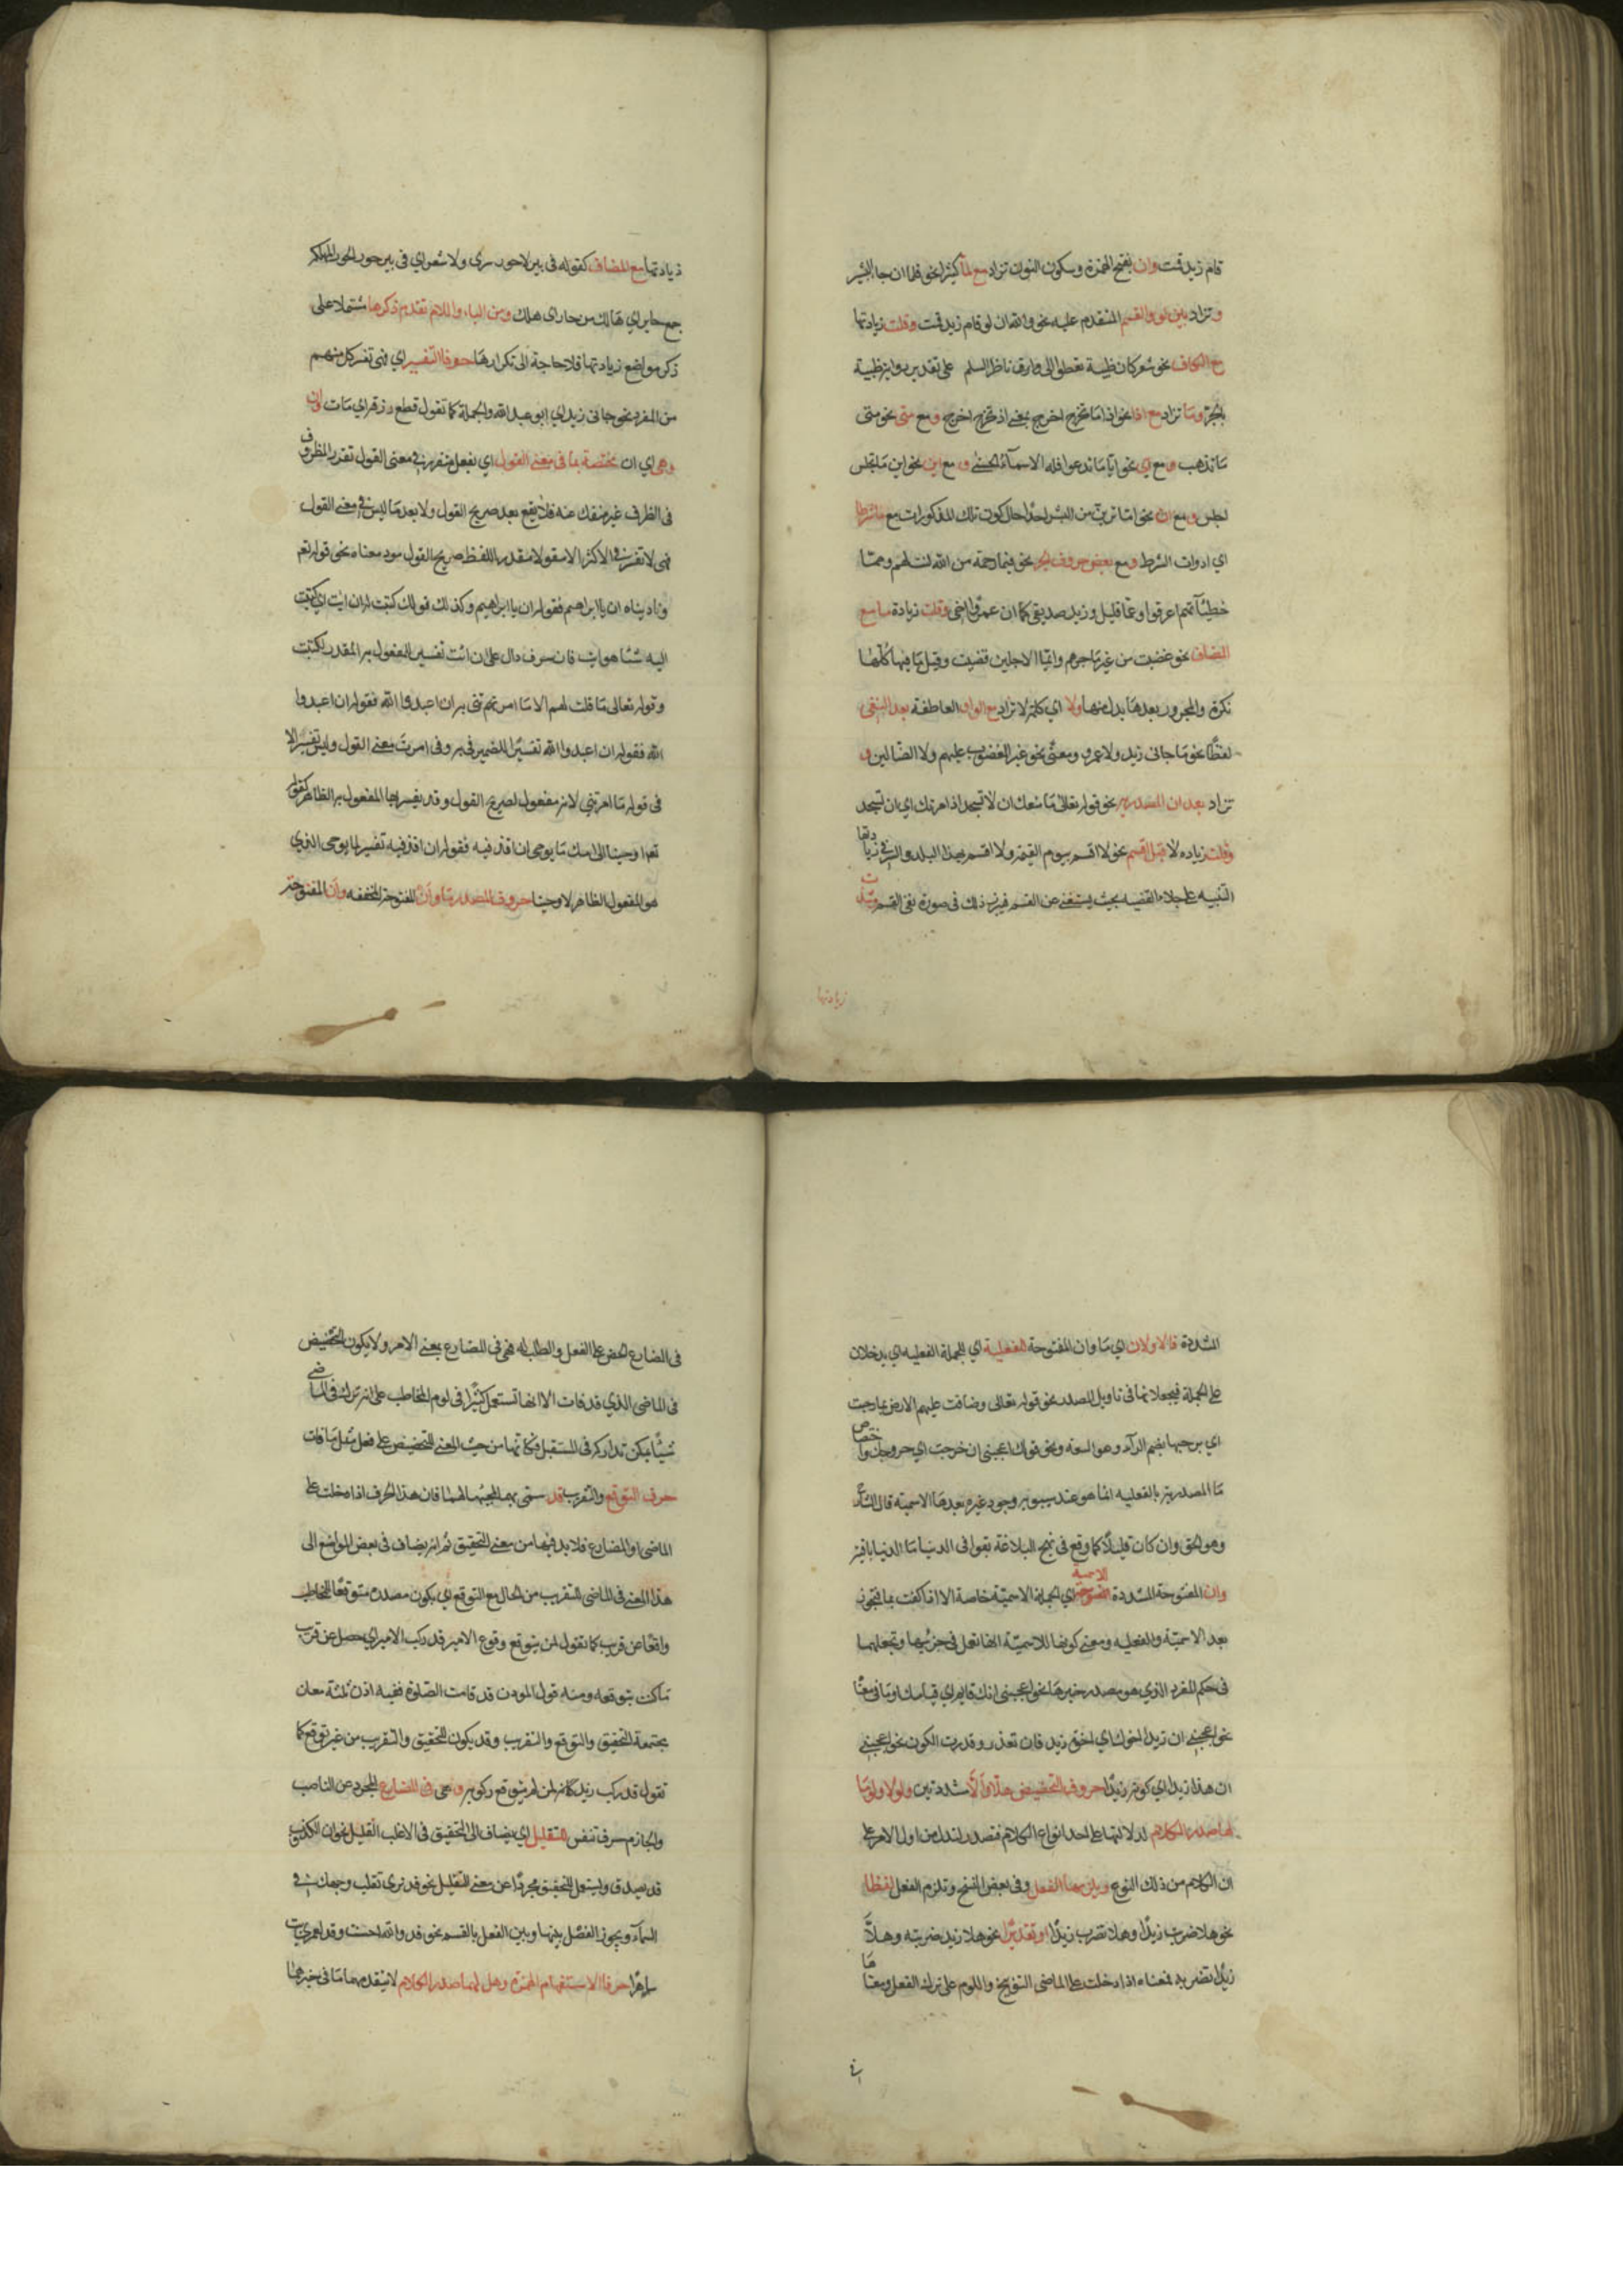 قام زيد قمت وان بفتح الهمزة وسكون النون تزاد مع لما كثيرا نحو فلما ان جاء البشير
وتزاد بين لو والقسم المتقدم عليه نحو والله ان لو قام زيد قمت وقلت زيادتها
مع الكاف نحو شعر كان ظبية تعطوا الى وارق ناظر السلم على تقدير رواية ظبية
بالجر وما تزاد مع اذا نحو اذا ما تخرج اخرج بمعنى اذ تخرج اخرج و مع متى نحو متى
ما تذهب و مع اي نحو ايا ما تدعوا فله الاسماء الحسنى و مع اين نحو اين ما تجلس
اجلس و مع ان نحو اما ترين من البشر احدا حال كون تلك المذكورات مع ما شرطا
اي ادوات الشرط و مع بعض حروف الجر نحو فبما رحمة من الله لنت لهم ومما
خطيئاتهم اغرقوا وعما قليل وزيد صديقي كما ان عمروا اخي وقلت زيادة ما مع
المضاف نحو غضبت من غير ما جرم وايما الاجلين قضيت وقيل ما فيها كلها
نكرة والمجرور بعدها بدل منها ولا اي كلمة لا تزاد مع الواو العاطفة بعد النفي
لفظا نحو ما جائى زيد ولا عمرو ومعنى نحو غير المغضوب عليهم ولا الضالين و
تزاد بعد ان المصدرية نحو قوله تعالى ما منعك ان لا تسجد اذ امرتك اي ان تسجد
وقلت زيادة لا قبل اقسم نحو لا اقسم بيوم القيمة ولا اقسم بهذا البلد والسر في زيادتها
التنبيه على جلاء القضيه بحيث يستغنى عن القسم فيبرز ذلك في صورة نفي القسم وشذت
زيادتها
زيادتها مع المضاف كقوله في بير لا حور سرى ولا شعر اي في بير حور الحور الهلكة
جمع حاير اي هالك من حار اي هلك ومن الباء واللام تقدم ذكرها مشتملا على
ذكر مواضع زيادتها فلا حاجة الى تكرارها حرفا التفسير اي فهي تفسر كل مبهم
من المفرد نحو جائى زيد اي ابو عبد الله والجملة كما تقول قطع رزقه اي مات وان
وهي اي ان مختصة بما في معنى القول اي بفعل متقرر في معنى القول تقرر المظروف
في الظرف غير منفك عنه فلا يقع بعد صريح القول ولا بعد ما ليس في معنى القول
فهي لا تفسر في الاكثر الا مفعولا مقدرا للفظ صريح القول مود معناه نحو قوله تعم
وناديناه ان يا ابراهيم فقوله ان يا ابراهيم وكذلك قولك كتبت اليه ان ايت اي كتبت
اليه شيئا هو ايت فان حرف دال على ان ائت تفسير للمفعول به المقدر لكتبت
وقوله تعالى ما قلت لهم الا ما امرتني به ان اعبدوا الله فقوله ان اعبدوا
الله فقوله ان اعبدوا الله تفسيرا للضمير في به وفي امرت معنى القول وليس تفسيرا لا
في قوله ما امرتني لانه مفعول لصريح القول وقد يفسر بها المفعول به الظاهر كقوله
تعم اوحينا الى امك ما يوحى ان اقذفيه فقوله ان اقذفيه تفسير لما يوحى الذي
هو المفعول الظاهر لاوحينا حروف المصدر ما وان المفتوحة المخففه وان المفتوحة
المشددة فالاولان اي ما وان المفتوحة للفعلية اي للجملة الفعليه اي يدخلان
على الجملة فيجعلانها في تاويل المصدر نحو قوله تعالى وضاقت عليهم الارض بما رحبت
اي برحبها بضم الراء وهو السعة ونحو قولك اعجبنى ان خرجت اي خروجك واختصاص
ما المصدرية بالفعليه انما هو عند سيبويه وجوز غيره بعدها الاسمية قال الشارح
وهو الحق وان كان قليلا كما وقع في نهج البلاغة بقوا في الدنيا ما الدنيا باقية
وان المفتوحة المشددة للاسمية اي الجملة الاسمية خاصة الا اذا كفت بما فتجوز
بعد الاسمية والفعليه ومعنى كونها للاسمية انها تعمل في جزئيها وتجعلهما
في حكم المفرد الذي هو مصدر خبرها نحو اعجبنى انك قايم اي قيامك او ما في معناه
نحو اعجبنى ان زيدا اخوك اي اخوة زيد فان تعذر قدرت الكون نحو اعجبني
ان هذا زيد اي كونه زيدا حروف التحضيض هلا والا مشددتين ولولا ولوما
لها صدر الكلام لدلالتها على احد انواع الكلام فتصدر لتدل من اول الامر على
ان الكلام من ذلك النوع ويلزمها الفعل وفي بعض النسخ وتلزم الفعل لفظا
نحو هلا ضربت زيدا وهلا تضرب زيدا او تقديرا نحو هلا زيدا ضربته وهلا
زيدا تضربه فمعناه اذا دخلت على الماضى التوبيخ واللوم على ترك الفعل ومعناها
في
فى المضارع الحض على الفعل والطلب له فهي في المضارع بمعنى الامر ولا يكون التحضيض
في الماضى الذي قد فات الا انها تستعمل كثيرا في لوم المخاطب على انه ترك في الماضي
شيئا يمكن تداركه في المستقبل فكانها من حيث المعنى للتحضيض على فعل مثل ما فات
حرف التوقع والتقريب قد سمى بهما لمجيئها لهما فان هذا الحرف اذا دخلت على
الماضى او المضارع فلا بد فيها من معنى التحقيق ثم انه يضاف في بعض المواضع الى
هذا المعنى في الماضى للتقريب من الحال مع التوقع اي يكون مصدره متوقعا للمخاطب
واقعا عن قريب كما تقول لمن يتوقع وقوع الامير قد ركب الامير اي حصل عن قريب
ما كنت تتوقعه ومنه قول الموذن قد قامت الصلوة ففيه اذن ثلثة معان
مجتمعة التحقيق والتوقع والتقريب وقد يكون للتحقيق والتقريب من غير توقع كما
تقول قد ركب زيد لمن لم يتوقع ركوبه وهي في المضارع المجرد عن الناصب
والجازم وحرف تنفس للتقليل اي يضاف الى التحقيق في الاغلب التقليل نحو ان الكذوب
قد يصدق وليستعمل للتحقيق مجردا عن معنى التقليل نحو قد نرى تقلب وجهك في
السماء ويجوز الفصل بينها وبين الفعل بالقسم نحو قد والله احسنت وقد لعمري بت
ساهرا حرفا الاستفهام الهمزة وهل لهما صدر الكلام لا يتقدمهما ما في خبرهما